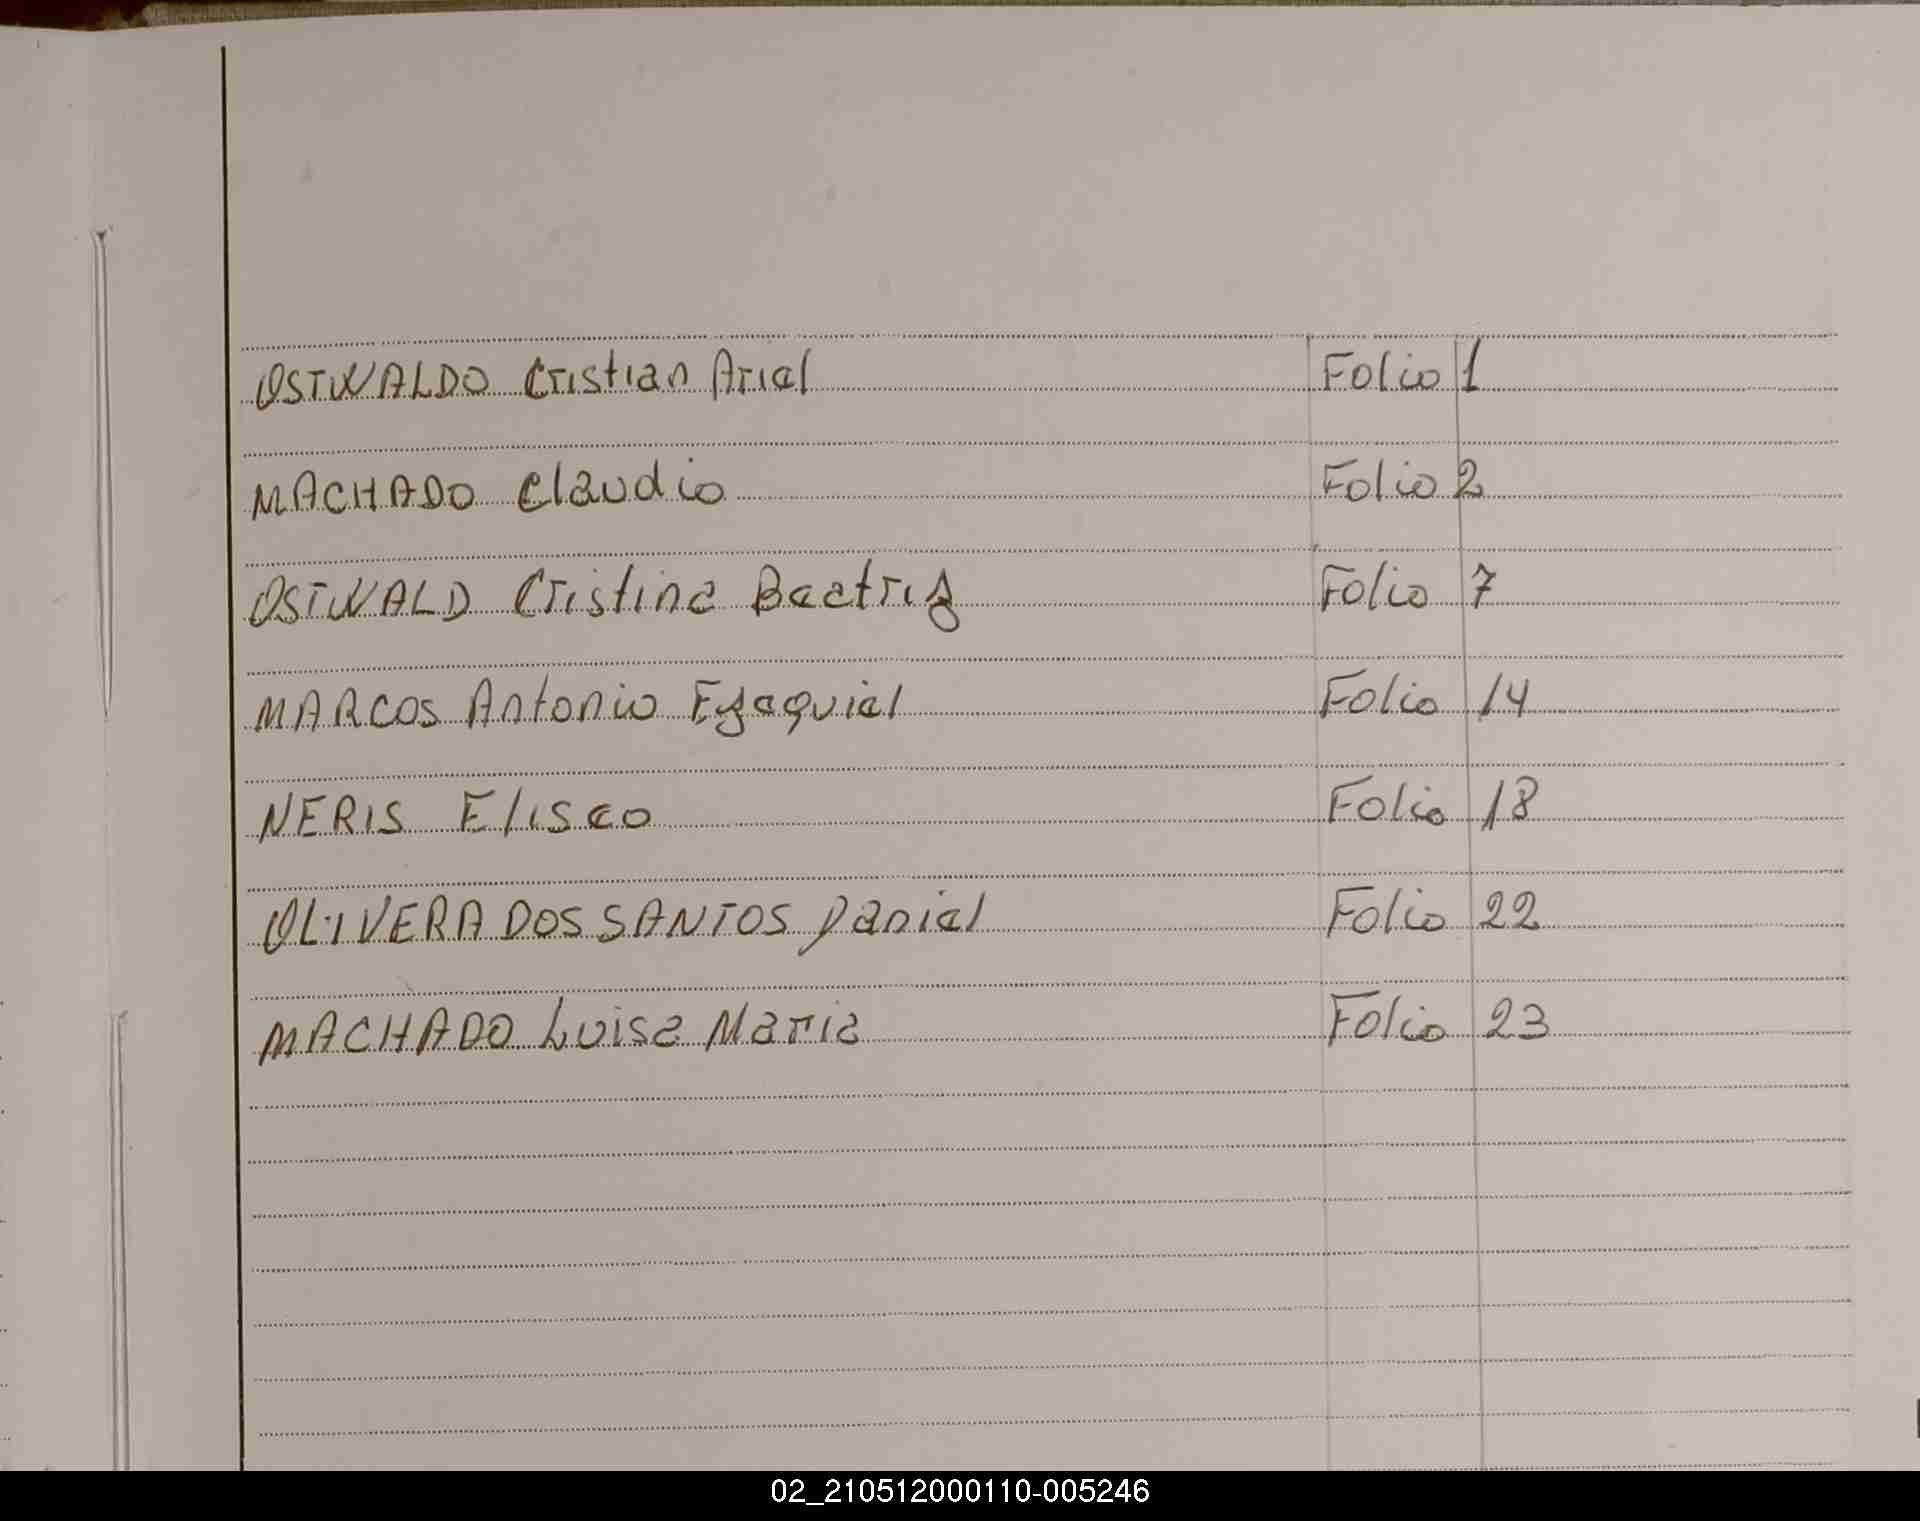 OSTWALDO Cristian Ariel Folio 1
MACHADO Claudio Folio 2
OSTWALD Cristina Beatriz Folio 7
MARCOS Antonio Ezequiel Folio 14
NERIS Eliseo Folio 18
OLIVERA DOS SANTOS Daniel Folio 22
MACHADO Luisa Maria Folio 23
02_210512000110-005246